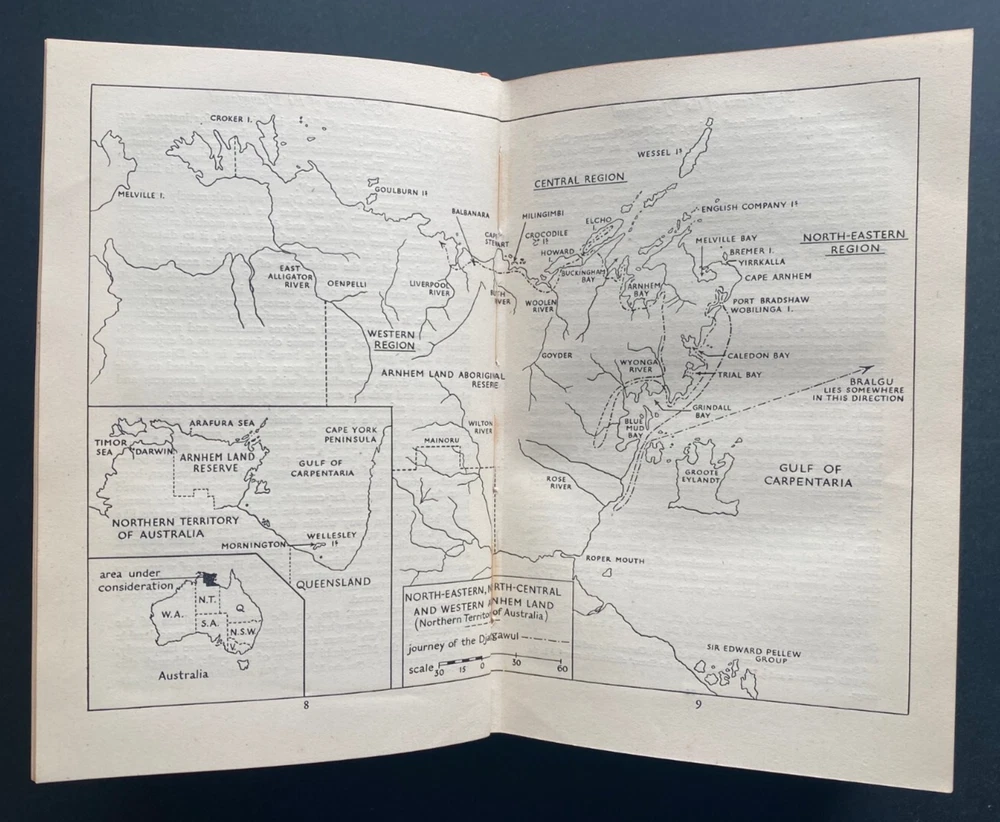 CROKER I.
MELVILLE I.
GOULBURN Iˢ
BALBANARA
CAPE
STEWART
EAST
ALLIGATOR
RIVER
OENPELLI
LIVERPOOL
RIVER
RIVER
WESTERN
REGION
ARNHEM LAND ABORIGINAL
RESERVE
WILTON
RIVER
MAINORU
ARAFURA SEA
TIMOR
SEA
DARWIN
ARNHEM LAND
RESERVE
CAPE YORK
PENINSULA
GULF OF
CARPENTARIA
NORTHERN TERRITORY
OF AUSTRALIA
MORNINGTON
WELLESLEY
Iˢ
QUEENSLAND
area under
consideration
W.A.
N.T.
S.A.
Q
N.S.W.
V
Australia
NORTH-EASTERN, NORTH-CENTRAL
AND WESTERN ARNHEM LAND
(Northern Territory of Australia)
journey of the Djanggawul
scale 30 15 0 30 60
8
WESSEL Iˢ
CENTRAL REGION
MILINGIMBI
ELCHO
I.
CROCODILE
Iˢ
HOWARD
ENGLISH COMPANY Iˢ
NORTH-EASTERN
REGION
MELVILLE BAY
BREMER I.
YIRRKALLA
CAPE ARNHEM
BUCKINGHAM
BAY
ARNHEM
BAY
WOOLEN
RIVER
PORT BRADSHAW
WOBILINGA I.
GOYDER
WYONGA
RIVER
CALEDON BAY
TRIAL BAY
BRALGU
LIES SOMEWHERE
IN THIS DIRECTION
GRINDALL
BAY
BLUE
MUD
BAY
ROSE
RIVER
GROOTE
EYLANDT
GULF OF
CARPENTARIA
ROPER MOUTH
SIR EDWARD PELLEW
GROUP
9